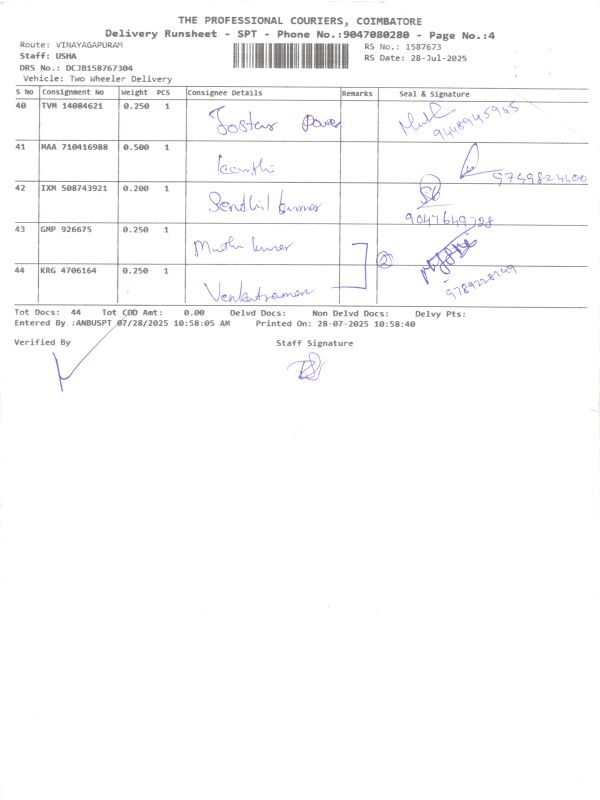 THE PROFESSIONAL COURIERS, COIMBATORE
Delivery Runsheet - SPT - Phone No.:9047080280 - Page No.:4
Route: VINAYAGAPURAM RS No.: 1587673
Staff: USHA RS Date: 28-Jul-2025
DRS No.: DCJB158767304
Vehicle: Two Wheeler Delivery
S No Consignment No Weight PCS Consignee Details Remarks Seal & Signature
40 TVM 14084621 0.250 1 9448945945
41 MAA 710416988 0.500 1
42 IXM 508743921 0.200 1 Sendhil kumar
9047649728
43 GMP 926675 0.250 1 Muthu kumar
44 KRG 4706164 0.250 1 Venkatraman 2 9789228249
Tot Docs: 44 Tot COD Amt: 0.00 Delvd Docs: Non Delvd Docs: Delvy Pts:
Entered By :ANBUSPT 07/28/2025 10:58:05 AM Printed On: 28-07-2025 10:58:40
Verified By Staff Signature